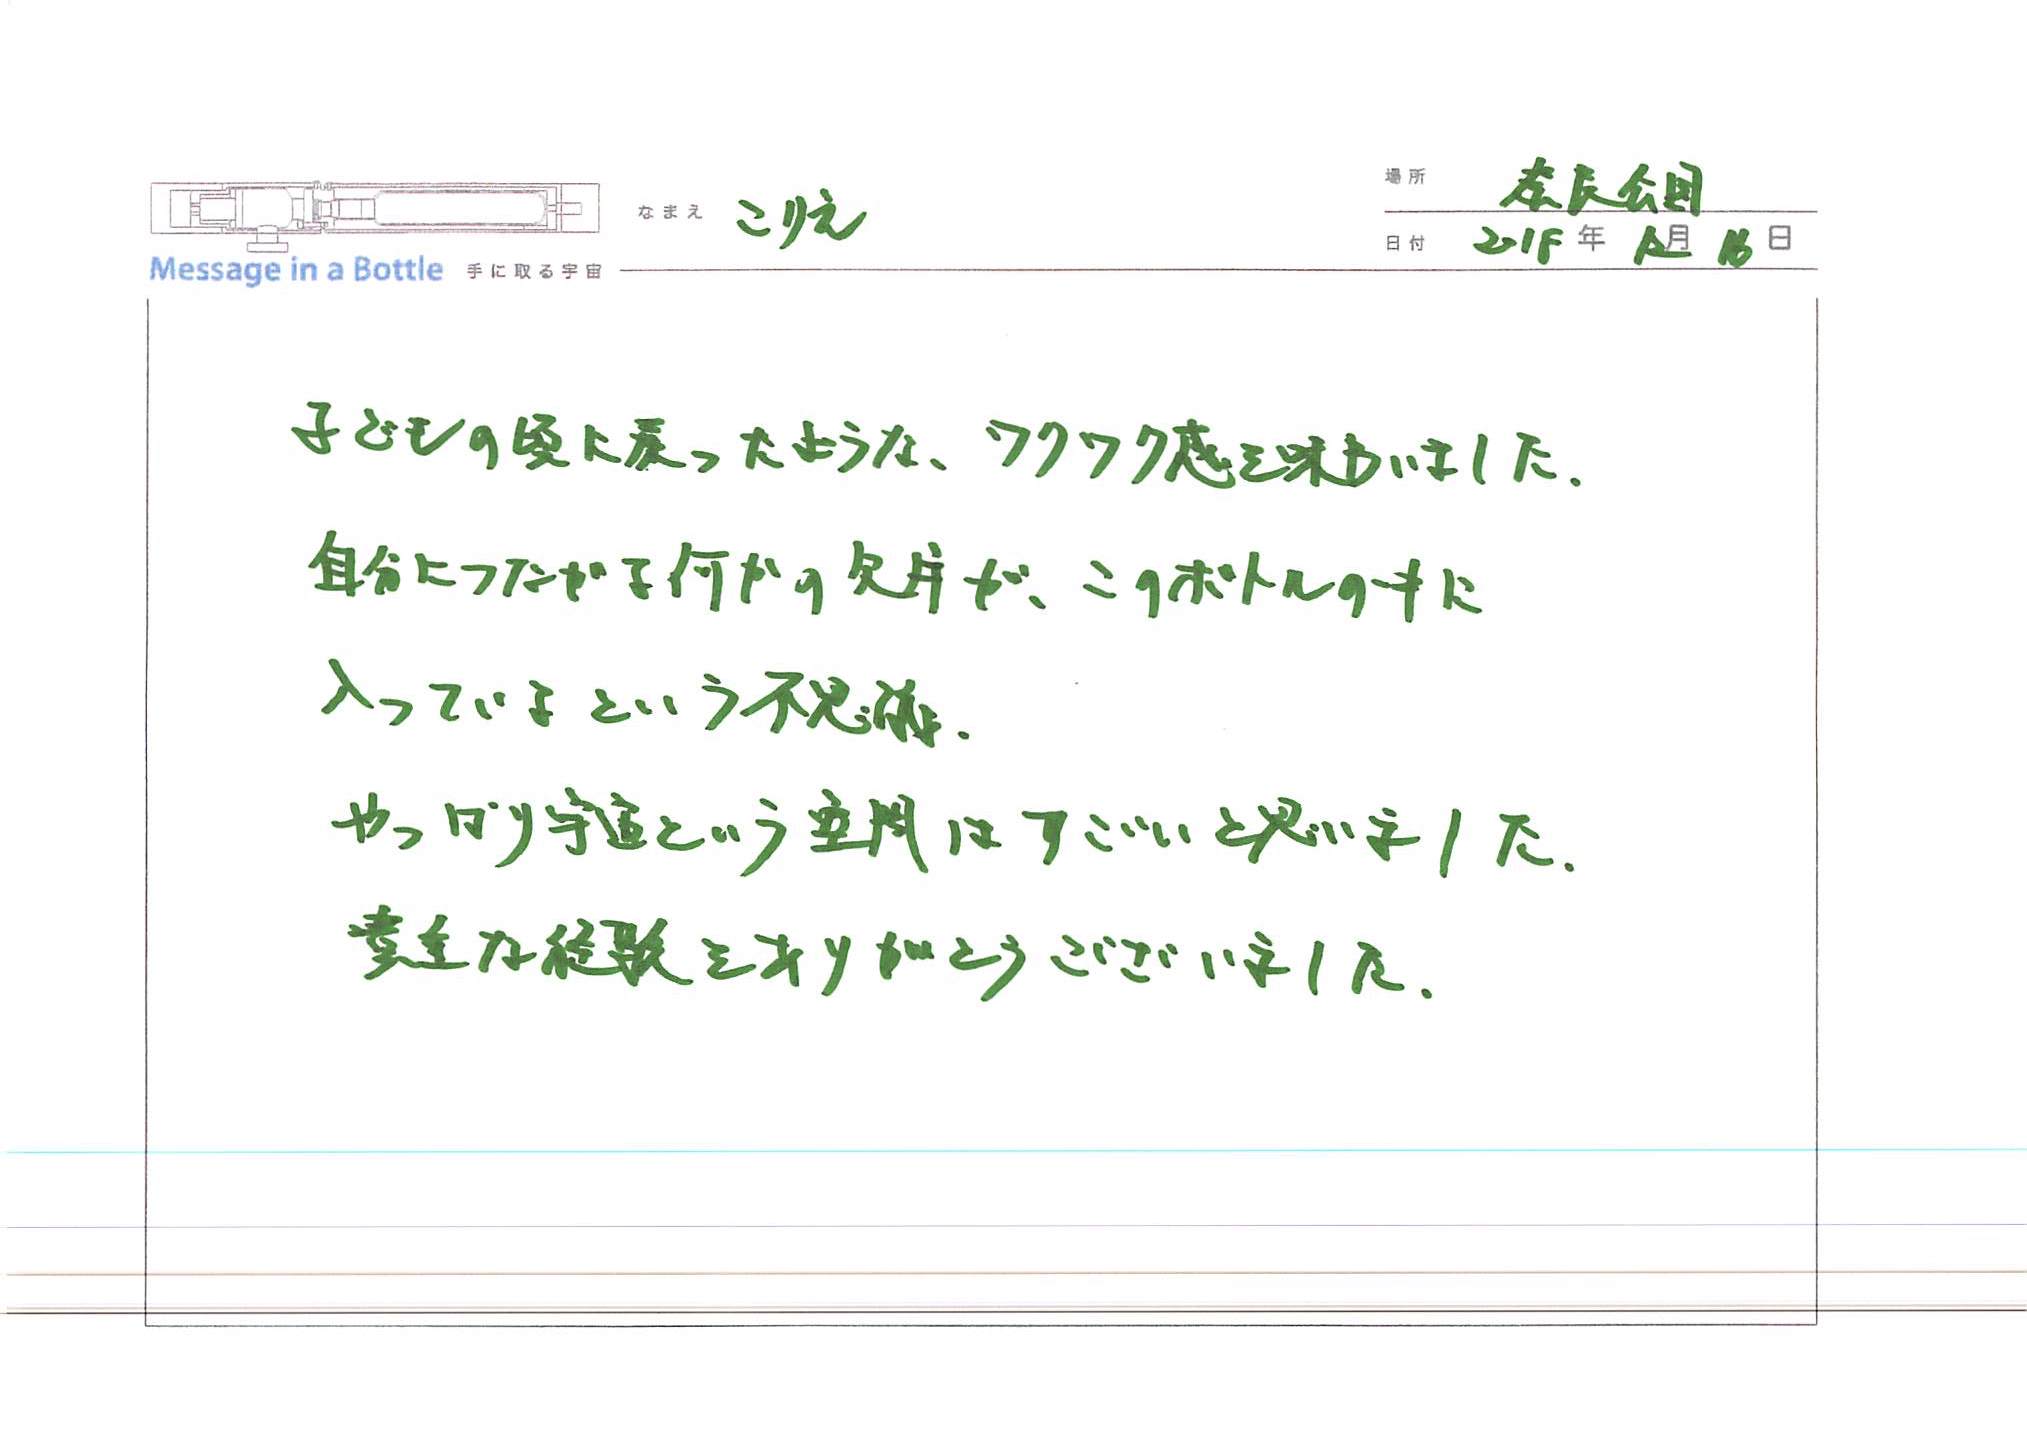 場所 奈良公園
なまえ こりえ
日付 2018年 12月 16日
Message in a Bottle 手に取る宇宙
子どもの頃に戻ったような、ワクワク感を味わいました.
自分につながる何かの欠片が、このボトルの中に
入っているという不思議.
やっぱり宇宙という空間はすごいと思いました.
貴重な経験をありがとうございました.